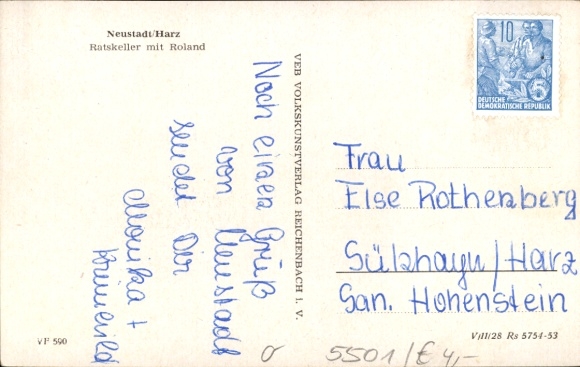 Neustadt/Harz
Ratskeller mit Roland
Noch einen Gruß
von Neustadt
sendet Dir
Monika +
Krimhild
VF 590
VEB VOLKSKUNSTVERLAG REICHENBACH I. V.
10
5
DEUTSCHE
DEMOKRATISCHE REPUBLIK
Frau
Else Rothenberg
Sülzhayn/Harz
San. Hohenstein
V/11/28 Rs 5754-53
5501/€ 4,-